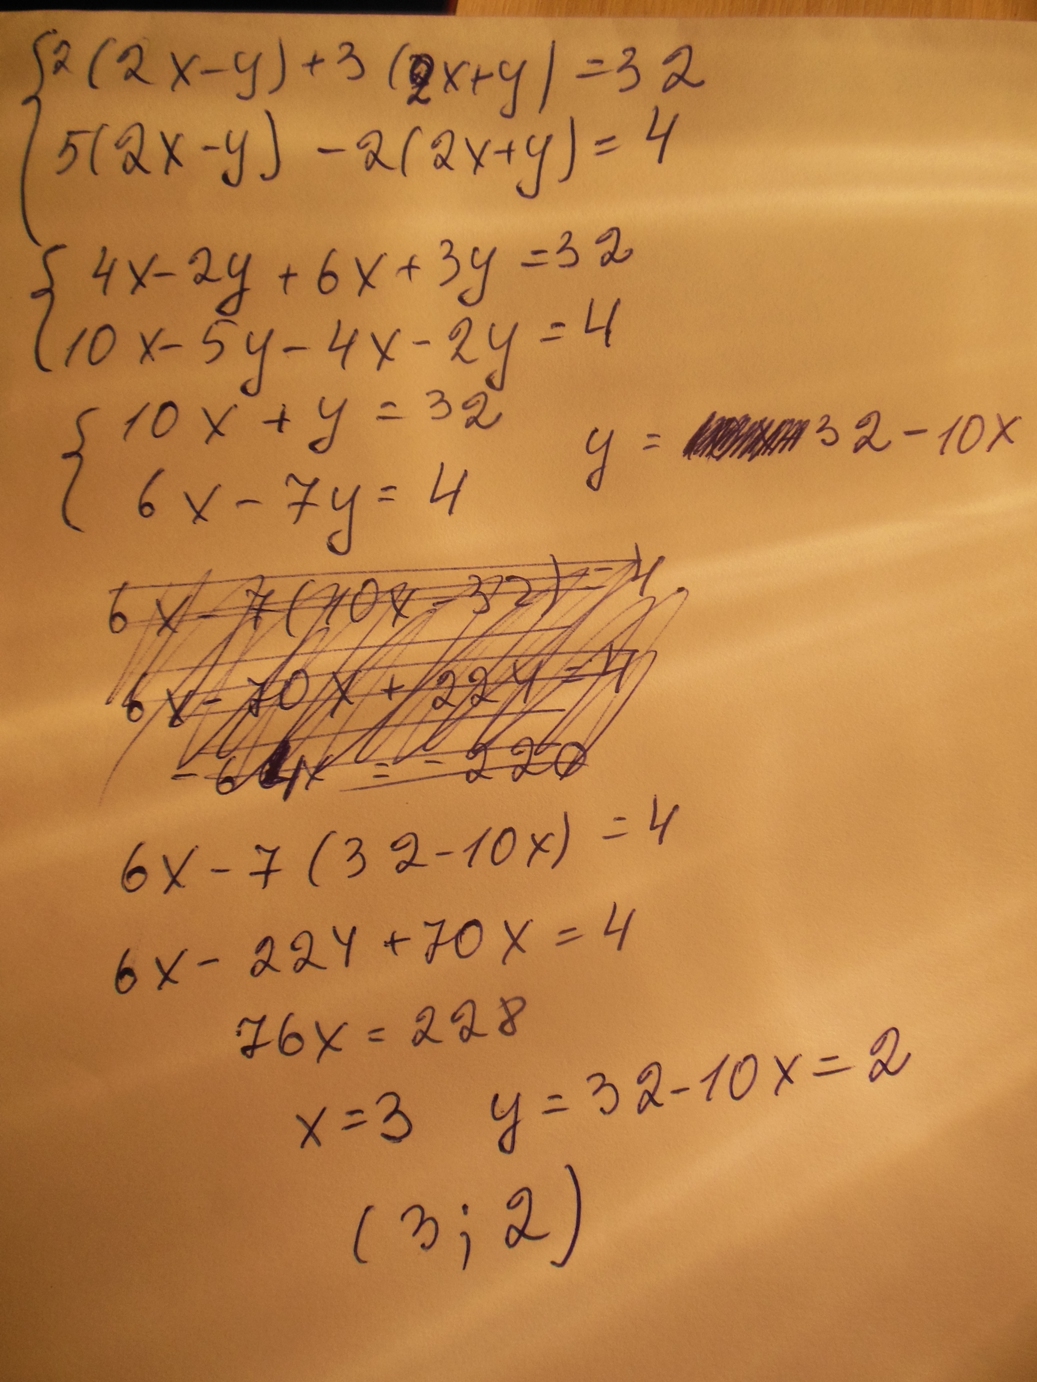 2(2x-y)+3(2x+y)=32
5(2x-y)-2(2x+y)=4
4x-2y+6x+3y=32
10x-5y-4x-2y=4
10x+y=32
6x-7y=4
y=32-10x
6x-7(10x-32)=4
6x-70x+224=4
-64x=-220
6x-7(32-10x)=4
6x-224+70x=4
76x=228
x=3 y=32-10x=2
(3;2)